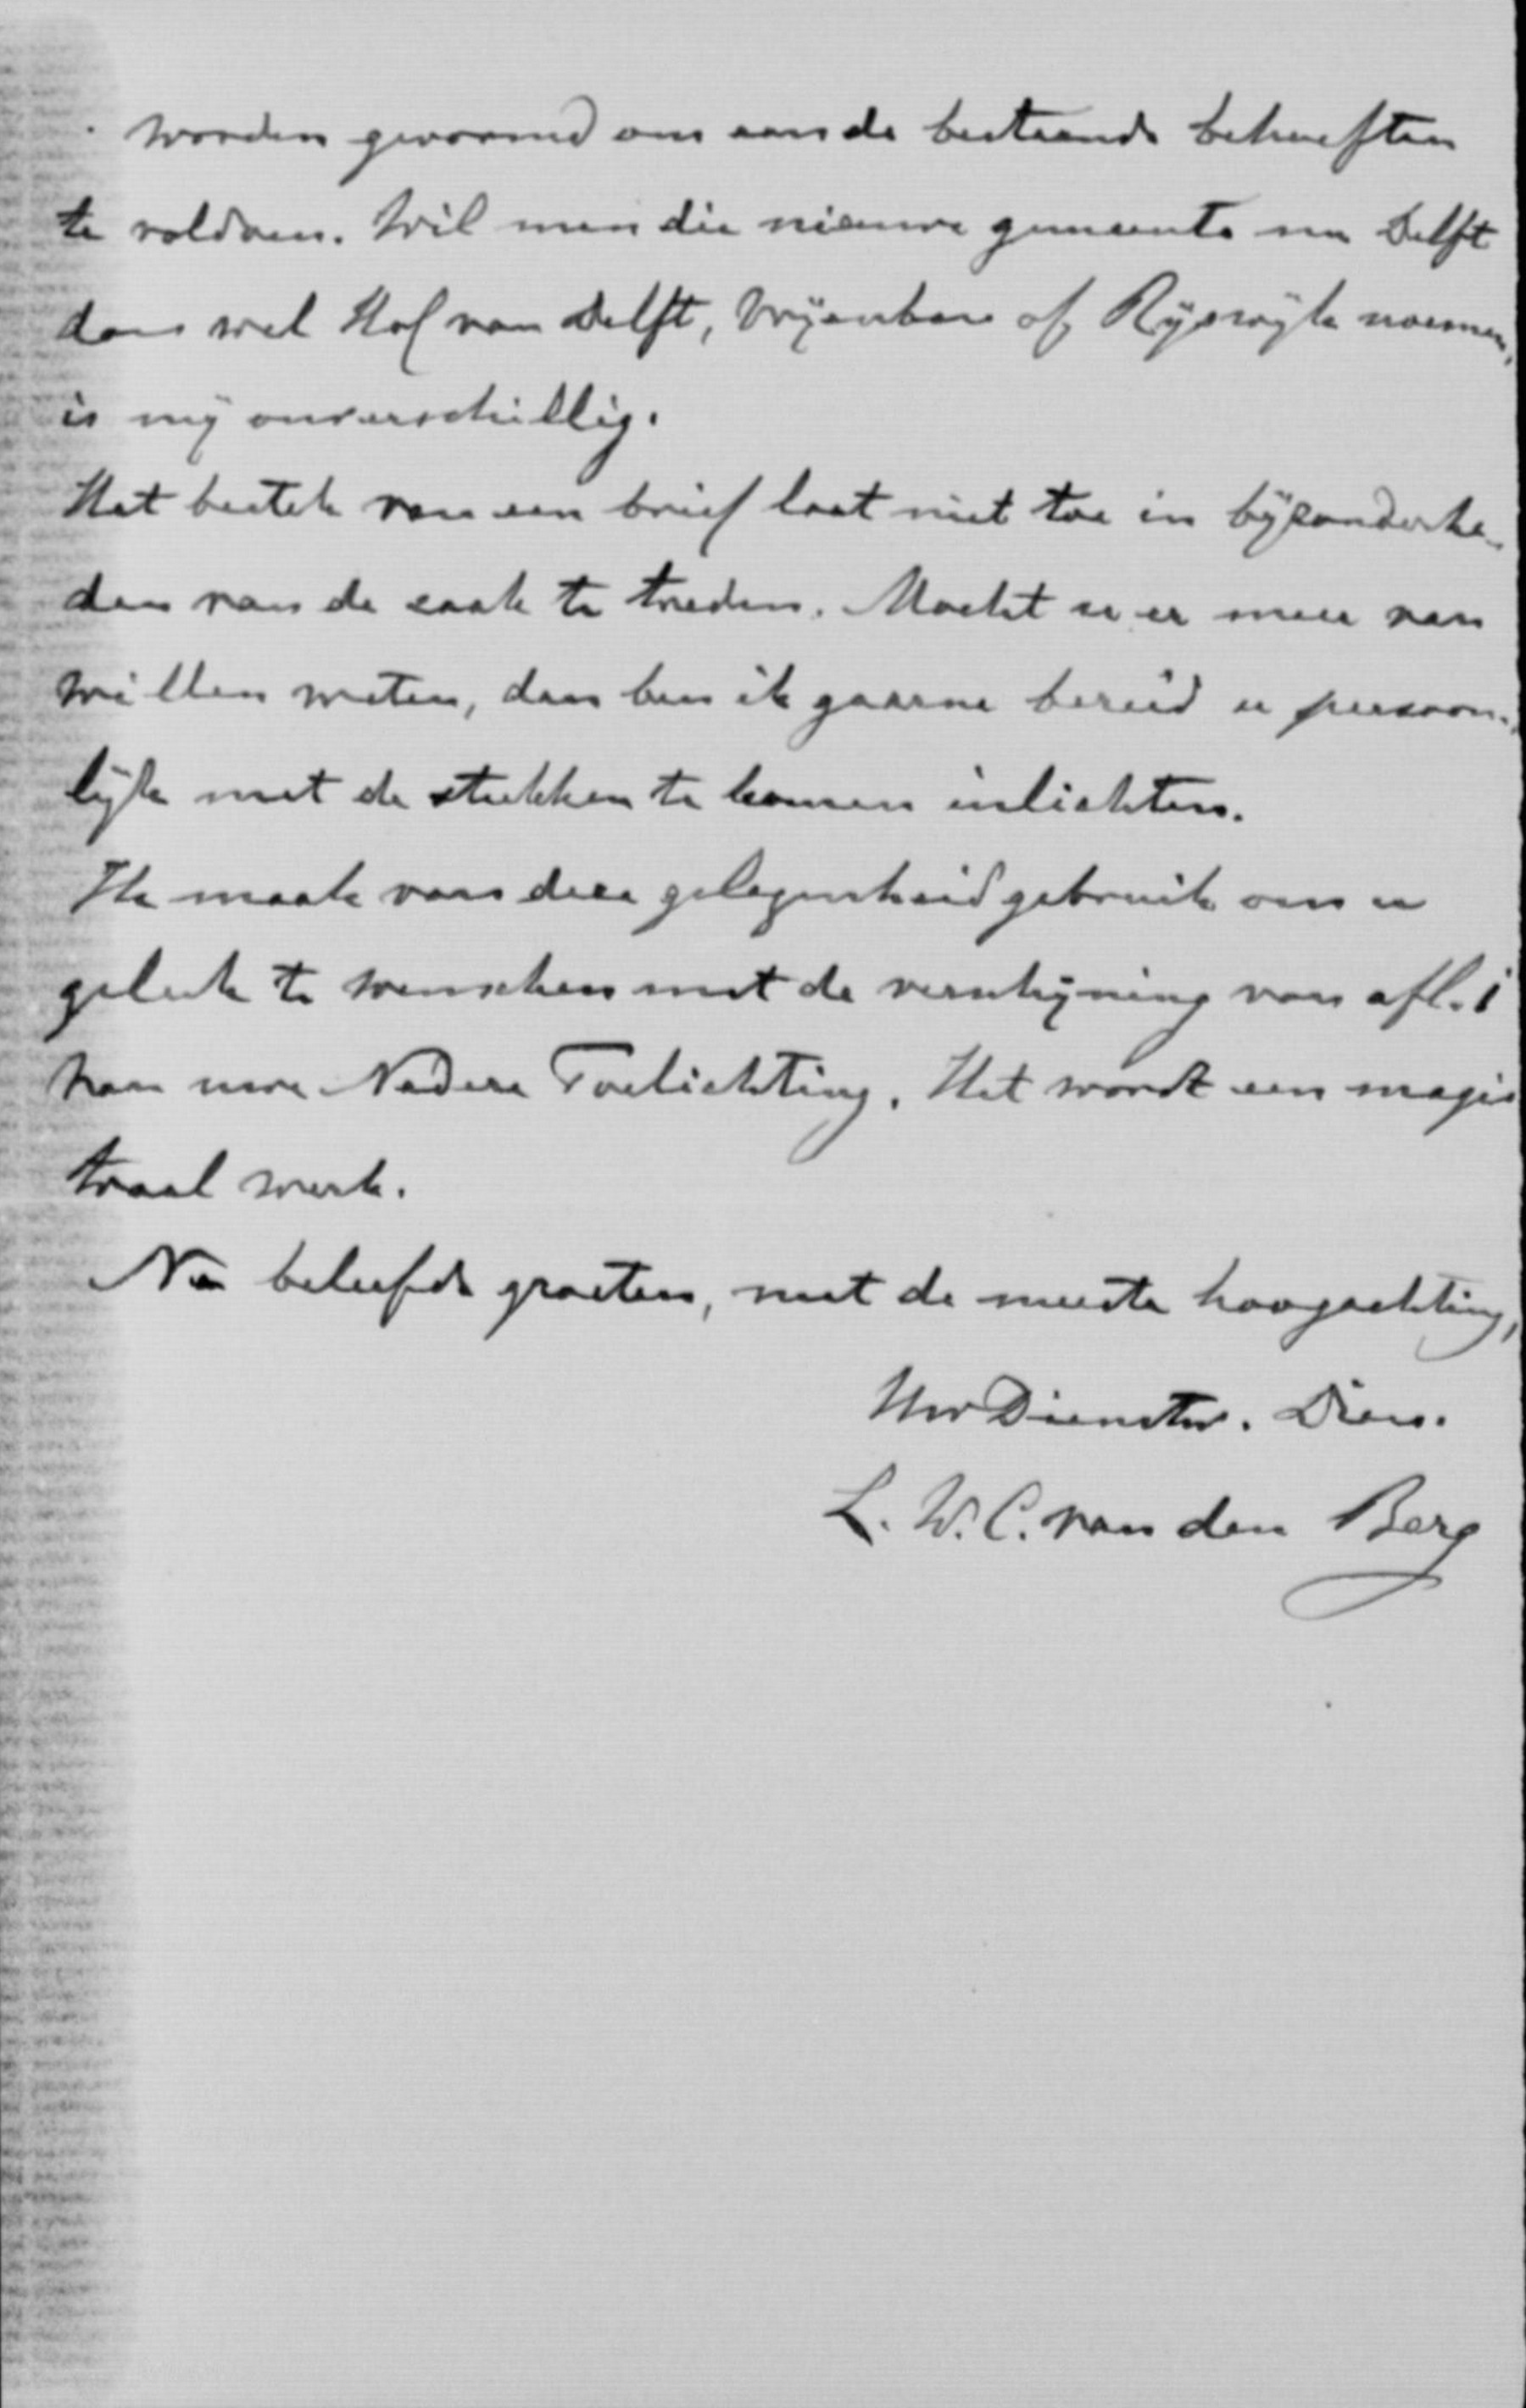 worden gevormd om aan de bestaande behoeften
te voldoen. Wil men die nieuwe gemeente nu Delft
dan wel Hof van Delft, Vrijenban of Rijswijk noemen,
is mij onverschillig.
Het bestek van een brief laat niet toe in bijzonderhe-
den van de zaak te treden. Mocht u er meer van
willen weten, dan ben ik gaarne bereid u persoon-
lijk met de stukken te komen inlichten.
Ik maak van deze gelegenheid gebruik om u
geluk te wenschen met de verschijning van afl. 1
van uwe Nadere Toelichting. Het wordt een magis
traal werk.
Na beleefde groeten, met de meeste hoogachting,
Uw Dienstw. Dien.
L. W. C. van den Berg